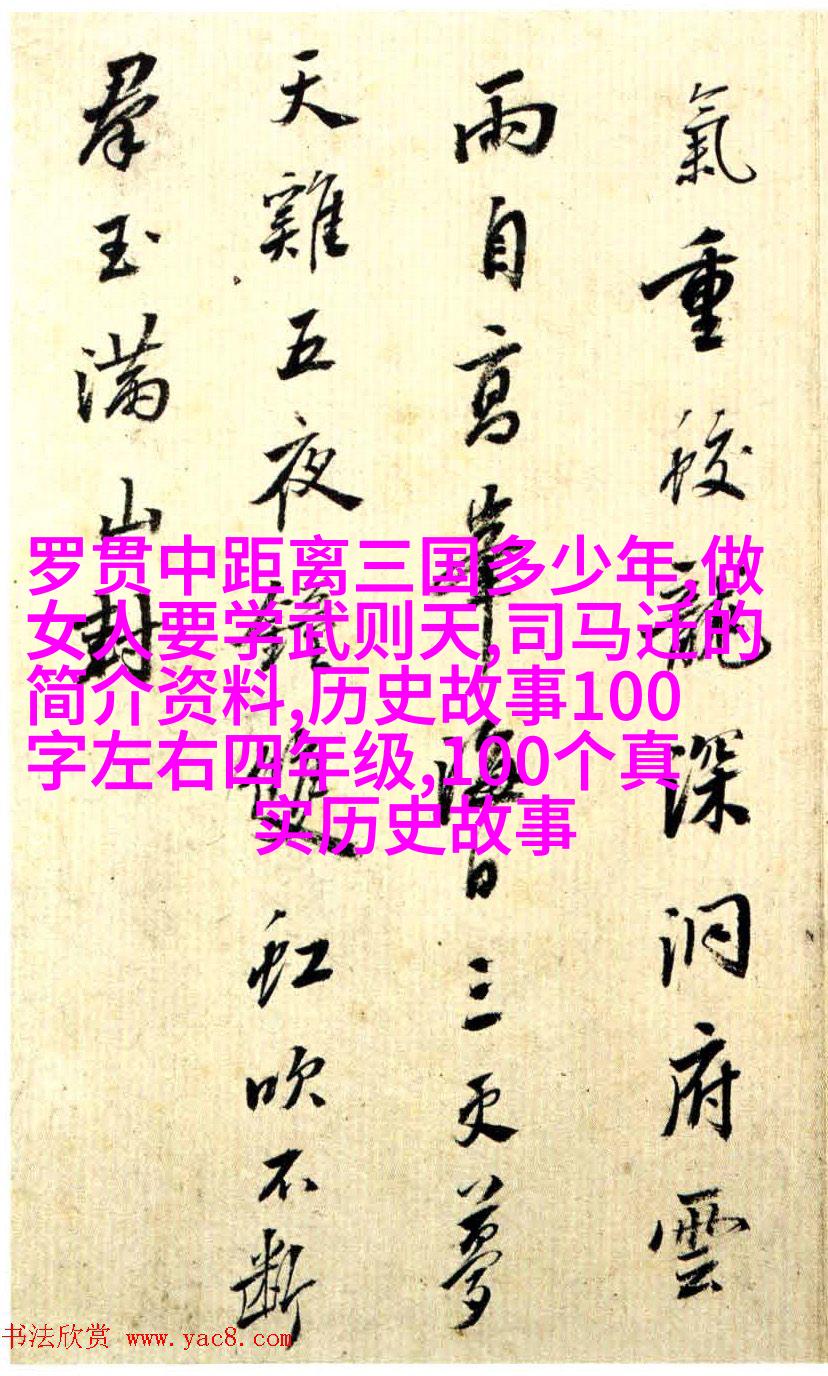 氣重蛟龍深洞府雲
雨自高峯海日三更夢
天雞五夜鐘雙虹吹不斷
羣玉滿山封
罗贯中距离三国多少年,做
女人要学武则天,司马迁的
简介资料,历史故事100
字左右四年级,100个真
实历史故事
书法欣赏 www.yac8.com